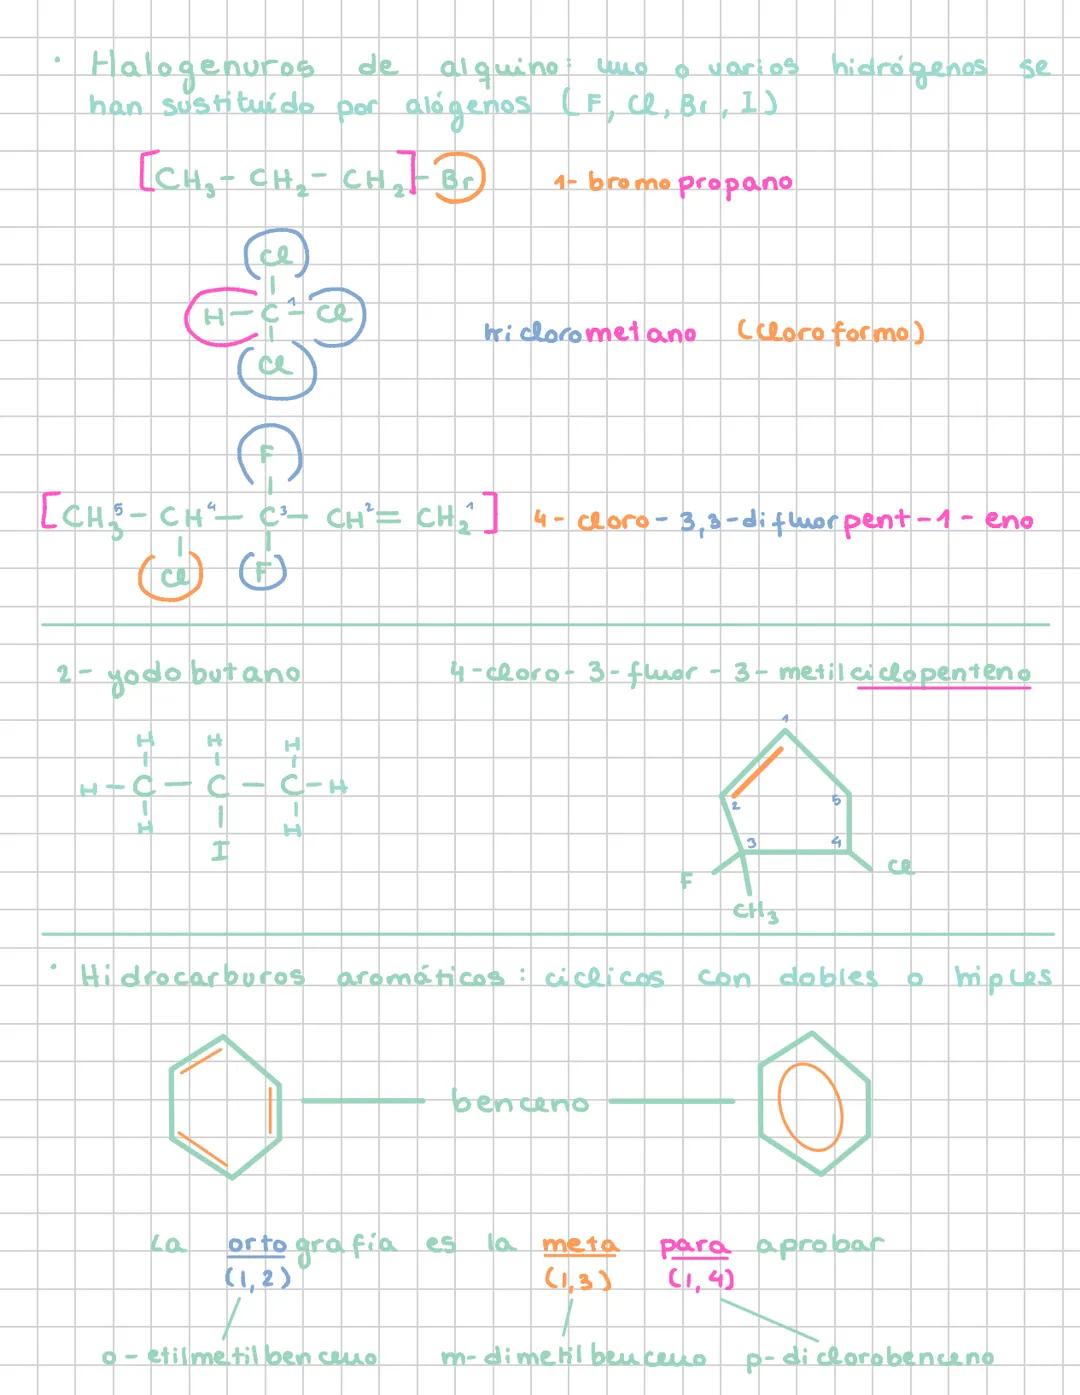 · Halogenuros de alquino: uno o varios hidrógenos se
han sustituído por alógenos (F, Cl, Br, I)
[CH₃ - CH₂ - CH₂] - Br 1- bromo propano
Cl
H - C¹ - Cl
triclorometano (cloroformo)
Cl
F
[CH₃⁵ - CH⁴ - C³ - CH² = CH₂¹] 4 - cloro - 3,3 - difluorpent - 1 - eno
Cl F
2 - yodobutano 4 - cloro - 3 - fluor - 3 - metilciclopenteno
1
H H H
H - C - C - C - H
2 5
H H
3 4
I
F Cl
CH₃
· Hidrocarburos aromáticos: ciclicos con dobles o triples
benceno
La ortografía es la meta para aprobar
(1,2) (1,3) (1,4)
o - etilmetilbenceno m- dimetilbenceno p- diclorobenceno